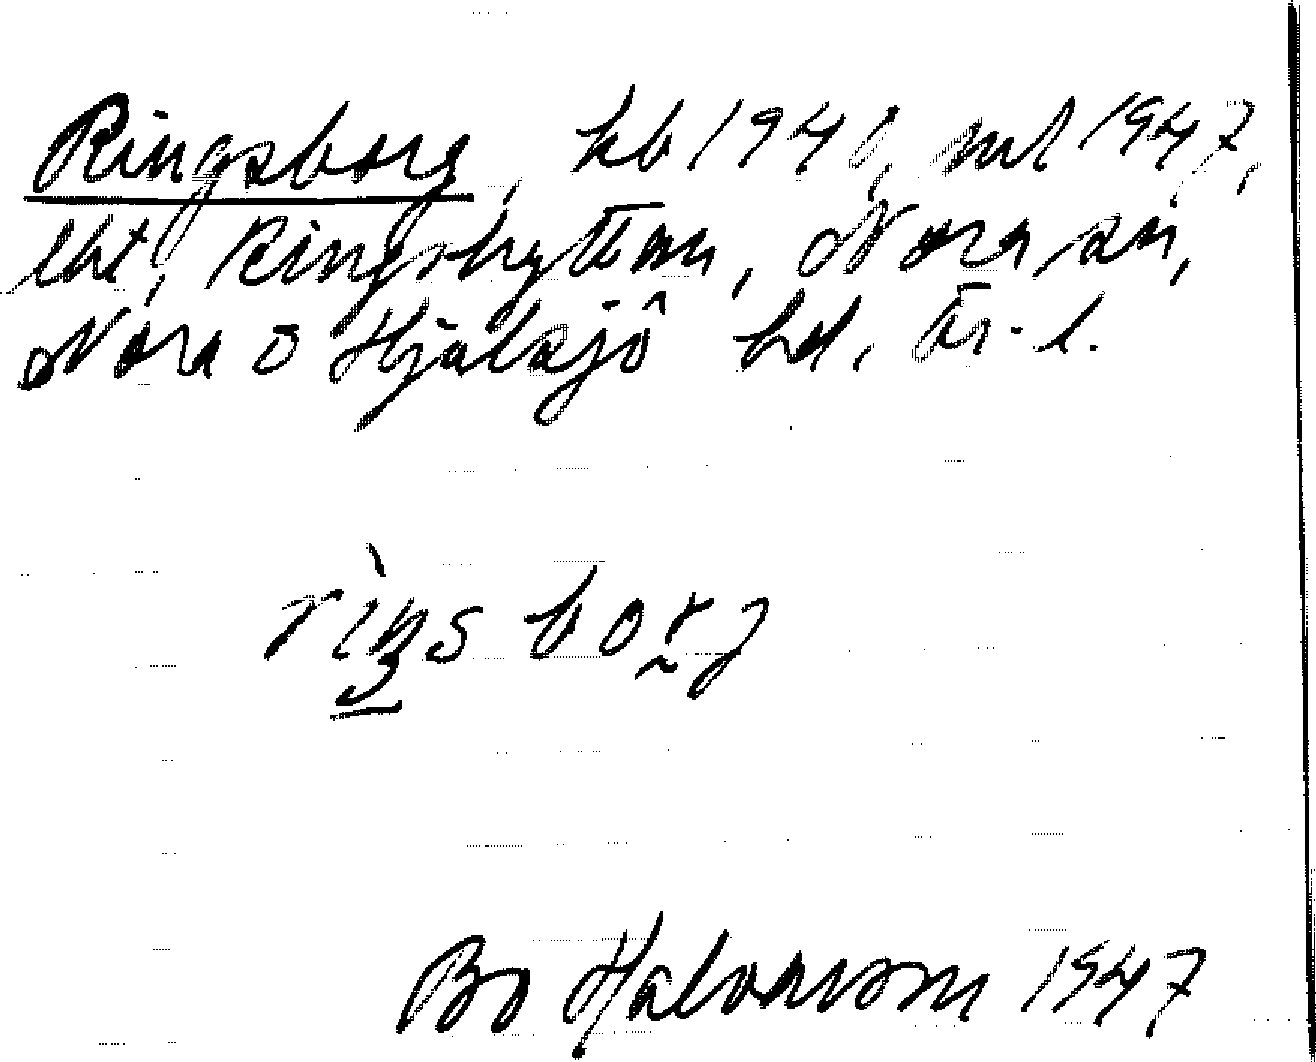 Ringsborg, kb 1940, ml 1947,
lht, Ringshyttan, Nora sn,
Nora o Hjulsjö hd. Ör. l.
rìŋs borg
Bo Halvarson 1947